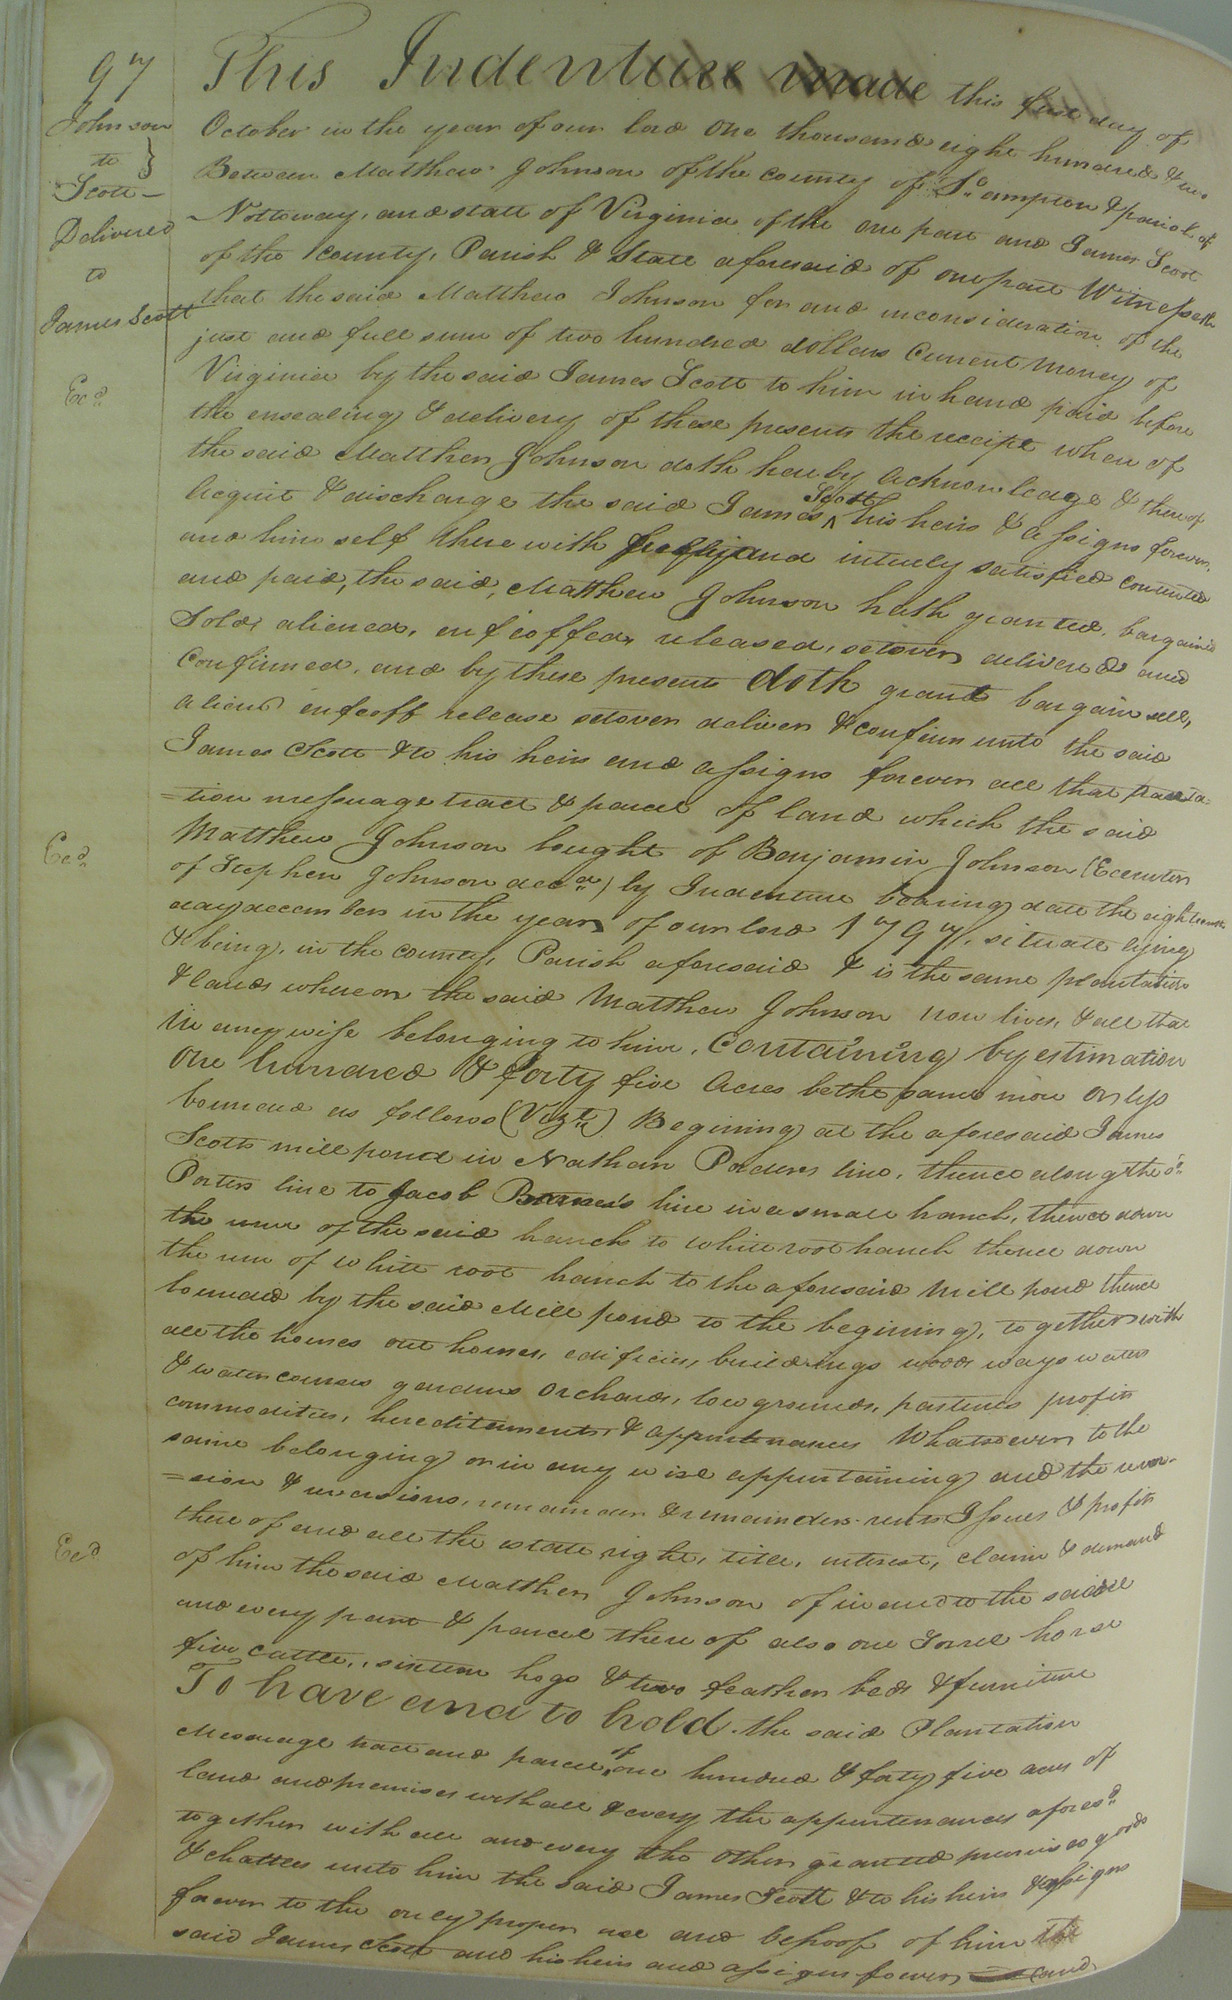 97
Johnson
to }
Scott –
Delivered
to
James Scott
Exd
Exd
Exd
This Indenture made this first day of
October in the year of our lord One thousand eight hundred & two
Between Matthew Johnson of the county of So. ampton & parish of
Nottoway, and state of Virginia of the one part and James Scott
of the County, Parish & State aforesaid of one part Witnesseth
that the said Matthew Johnson for and inconsideration of the
just and full sum of two hundred dollars Current Money of
Virginia by the said James Scott to him in hand paid before
the ensealing & delivery of these presents the receipt where of
the said Matthew Johnson doth hereby acknowledge & thereof
Acquit & discharge the said James ^Scott his heirs & assigns forever,
and him self there with fully and intirely satisfied contented
and paid, the said, Matthew Johnson hath granted, bargained
Sold, aliened, enfeoffed, released, setover, delivered and
Confirmed, and by these presents doth grant bargain sell,
alien enfeoff release setover deliver & confirm unto the said
James Scott & to his heirs and assigns forever all that planta-
=tion messuage tract & parcel of land which the said
Matthew Johnson bought of Benjamin Johnson (Executor
of Stephen Johnson decd.) by Indenture bearing date the eighteenth
day december in the year of our lord 1797, situate lying
& being, in the county, Parish aforesaid & is the same plantation
& lands whereon the said Matthew Johnson now lives, & all that
in any wise belonging to him, Containing by estimation
One hundred & forty five Acres be the same more or less
bounded as follows (Vizt.) Begining at the aforesaid James
Scotts mill pond in Nathan Porters line, thence along the sd.
Porters line to Jacob Barnes's line in a small branch, thence down
the run of the said branch to white root branch thence down
the run of white root branch to the aforesaid Mill pond thence
bounded by the said Mill pond to the begining, together with
all the houses out houses, edificies, buildings woods ways waters
& water courses gardens Orchards, low grounds, pastures profits
commodities, hereditements, & appurtenances Whatsoever to the
same belonging or in any wise appurtaining and the rever-
=sion & reversions, remainder & remainders rents Issues & profits
there of and all the estate, right, title, interest, claim & demand
of him the said Matthew Johnson of in and to the said
and every part & parcel there of also one Sorrel horse
five cattle, sixteen hogs & two feather beds & furniture
To have and to hold the said Plantation
Messuage tract and parcel ^of one hundred & forty five acres of
land and premises with all & every the appurtenances aforesd.
together with all and every the other granted premises goods
& chattles unto him the said James Scott & to his heirs & assigns
forever to the only proper use and behoof of him the
said James Scott and his heirs and assigns forever and